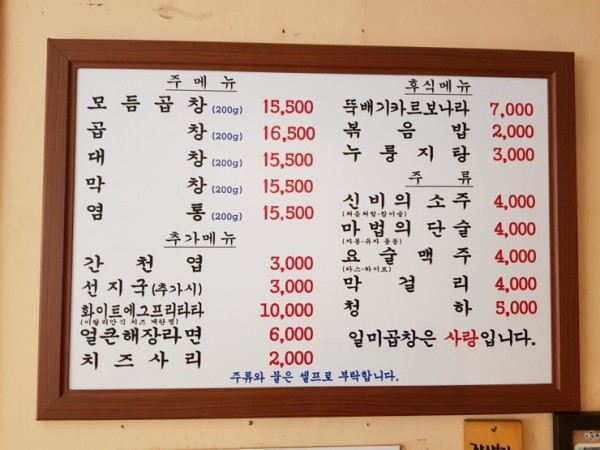 주 메 뉴
모 듬 곱 창 (200g) 15,500
곱 창 (200g) 16,500
대 창 (200g) 15,500
막 창 (200g) 15,500
염 통 (200g) 15,500
추가메뉴
간 천 엽 3,000
선 지 국 (추가시) 3,000
화이트에그프리타타 10,000
(이탈리안식 치즈 계란찜)
얼큰해장라면 6,000
치 즈 사 리 2,000
후식메뉴
뚝배기카르보나라 7,000
볶 음 밥 2,000
누 룽 지 탕 3,000
주 류
신비의 소주 4,000
(처음처럼·참이슬)
마법의 단술 4,000
(자몽·유자 등등)
요술맥주 4,000
(카스·하이트)
막 걸 리 4,000
청 하 5,000
일미곱창은 사랑입니다.
주류와 물은 셀프로 부탁합니다.